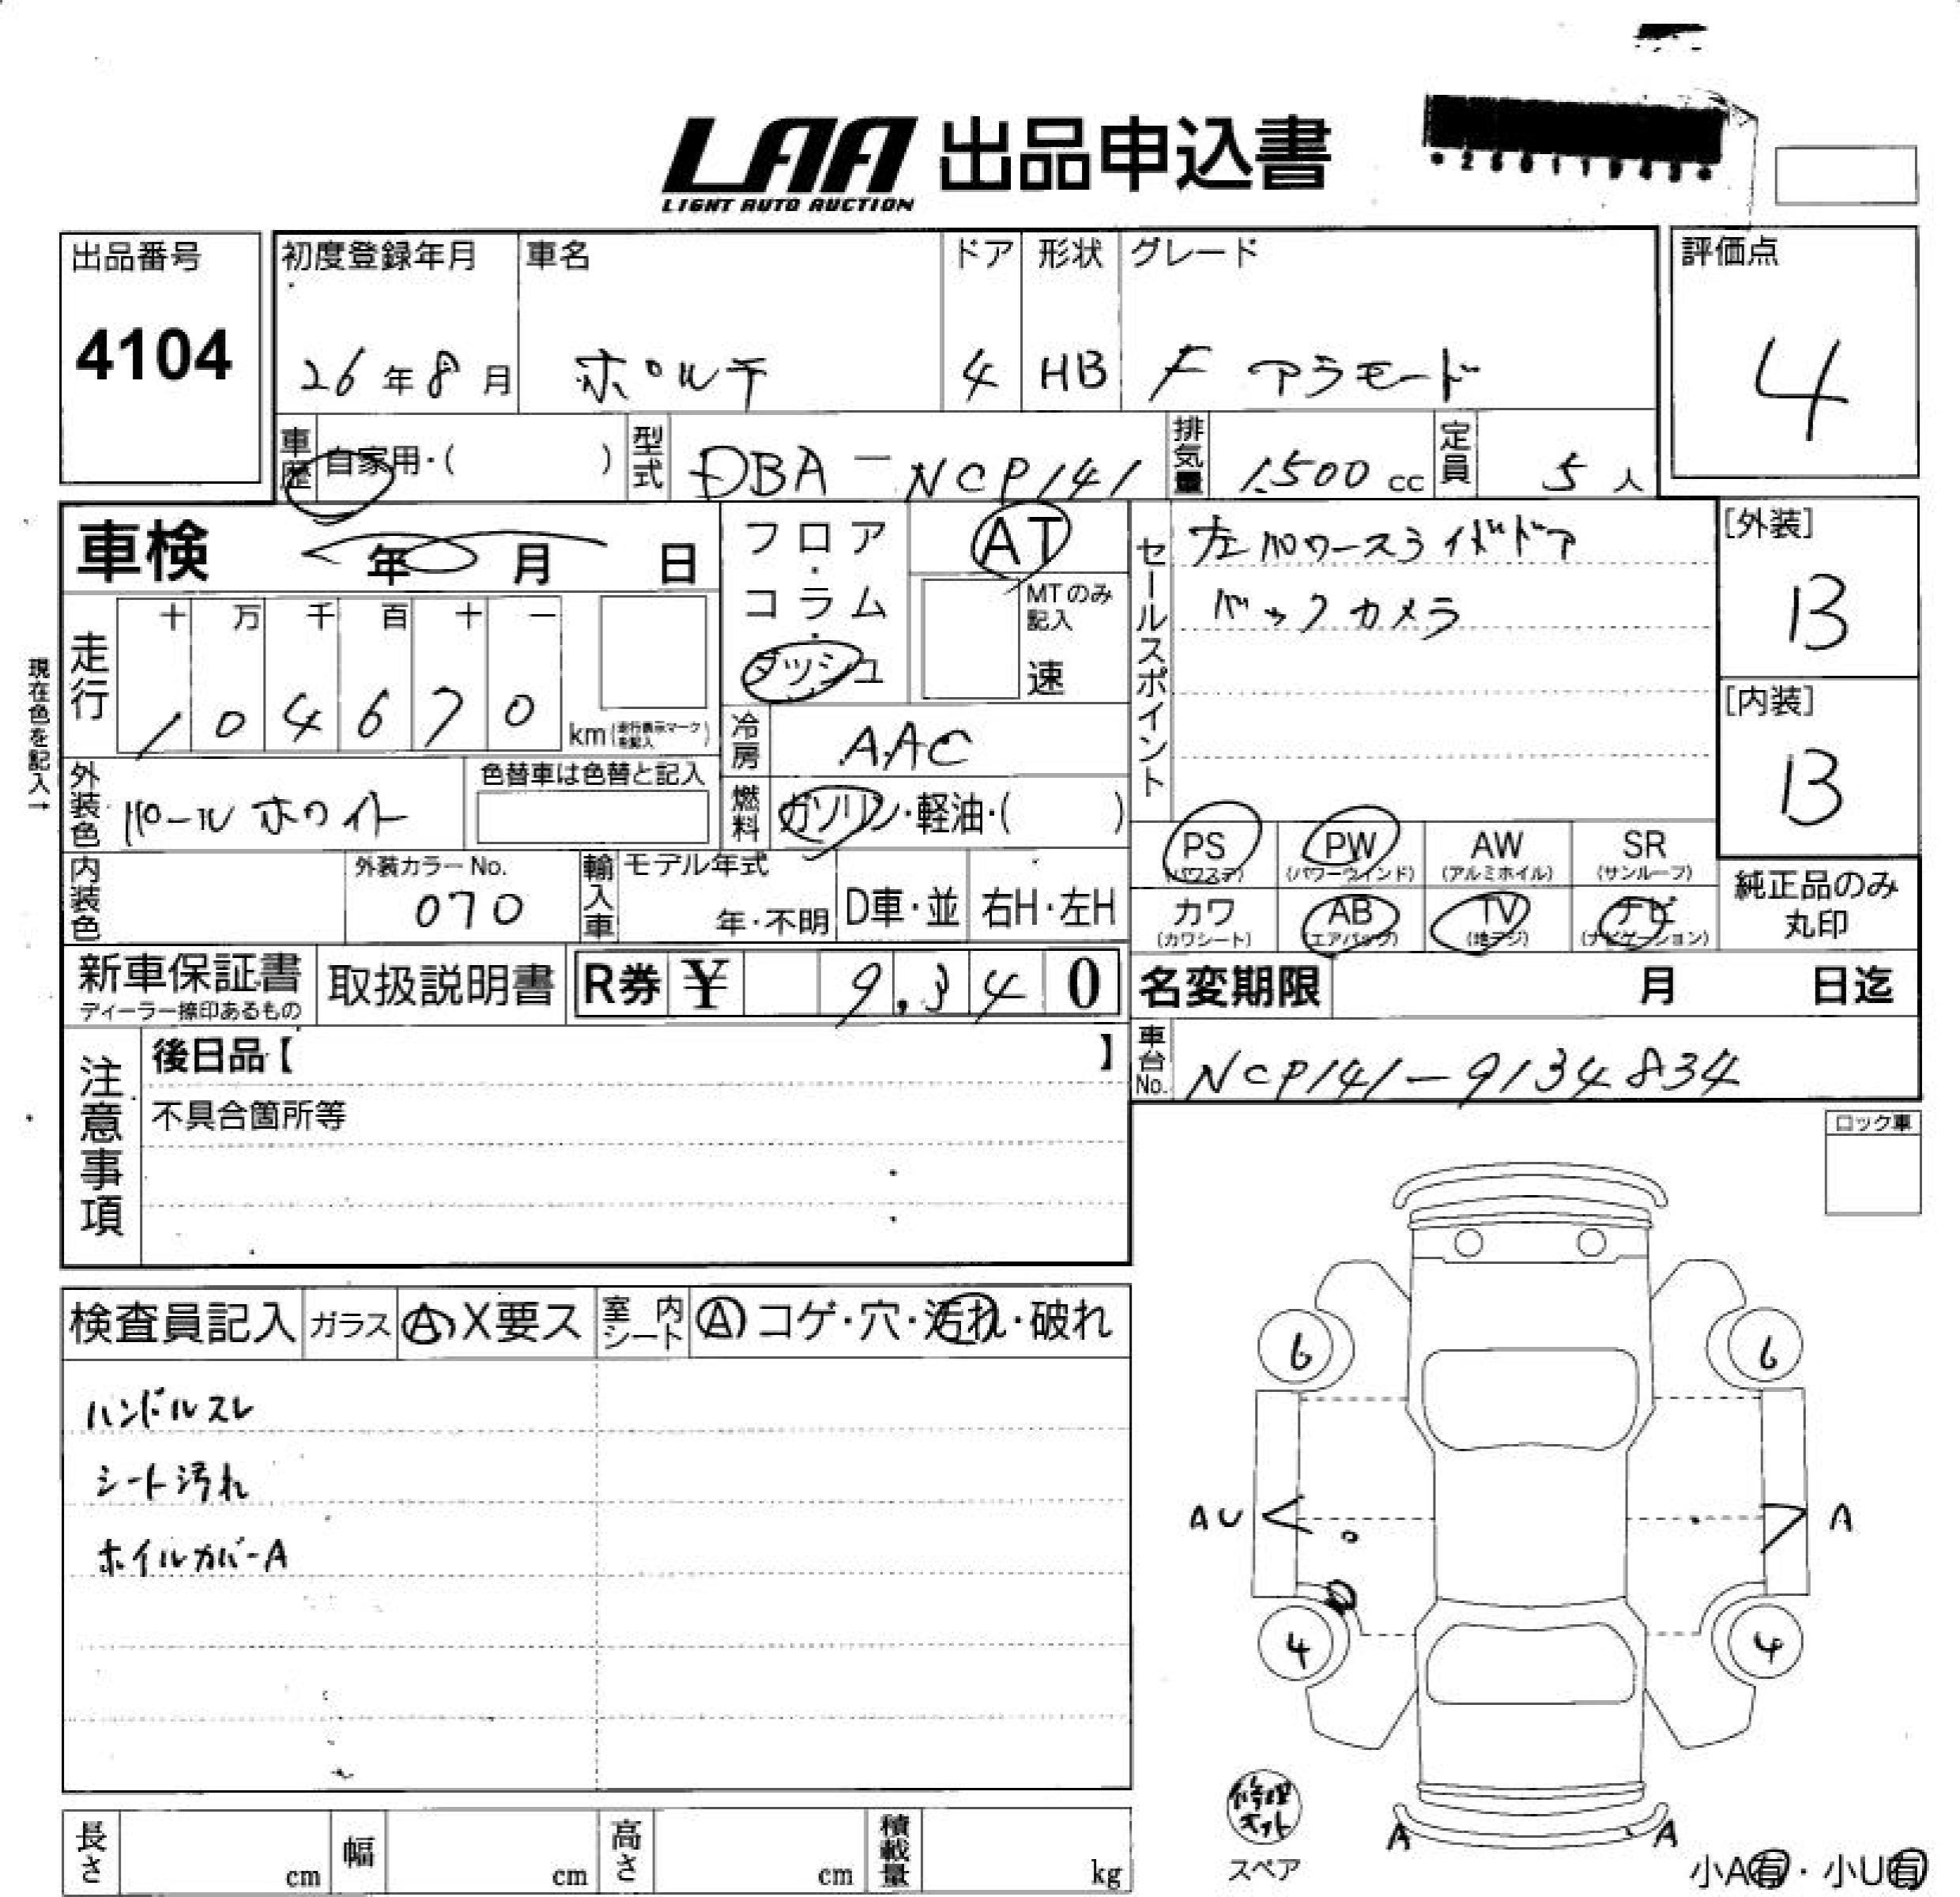 LAA 出品申込書
LIGHT AUTO AUCTION
出品番号
4104
初度登録年月
26年8月
車名
ポルテ
ドア
4
形状
HB
グレード
F アラモード
評価点
4
車歴
自家用・( )
型式
DBA-NCP141
排気量
1.500 cc
定員
5 人
車検 年 月 日
フロア・コラム・ダッシュ
AT
MTのみ記入
速
セールスポイント
左パワースライドドア
バックカメラ
[外装]
B
[内装]
B
現在色を記入→
走行
十 万 千 百 十 一
1 0 4 6 7 0
km(走行表示マークを記入)
冷房
AAC
外装色
パールホワイト
色替車は色替と記入
燃料
ガソリン・軽油・( )
PS (パワステ)
PW (パワーウインド)
AW (アルミホイル)
SR (サンルーフ)
カワ (カワシート)
AB (エアバッグ)
TV (地デジ)
ナビ (ナビゲーション)
純正品のみ
丸印
内装色
外装カラーNo.
070
輸入車
モデル年式
年・不明
D車・並
右H・左H
新車保証書
ディーラー捺印あるもの
取扱説明書
R券 ¥ 9,340
名変期限 月 日迄
車台No.
NCP141-9134834
注意事項
後日品【 】
不具合箇所等
ロック車
検査員記入
ガラス
A・X要ス
室内シート
A コゲ・穴・汚れ・破れ
ハンドルスレ
シート汚れ
ホイルカバーA
6
6
AU
A
4
4
A
A
修理キット
スペア
小A有・小U有
長さ cm
幅 cm
高さ cm
積載量 kg